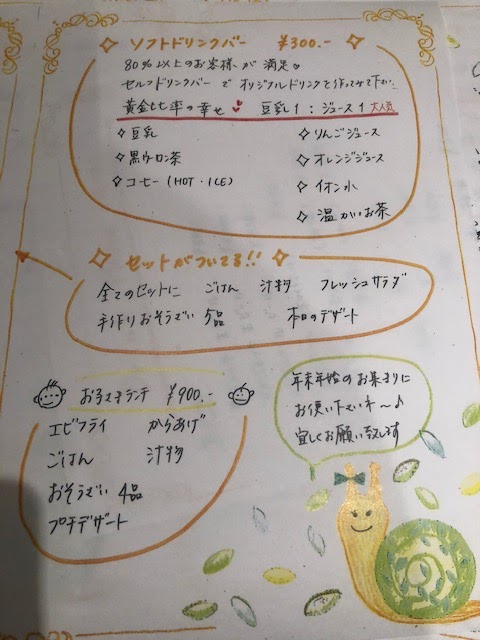 ソフトドリンクバー ¥300.-
80%以上のお客様が満足♡
セルフドリンクバーでオリジナルドリンクを作ってみて下さい
黄金比率の幸せ♥ 豆乳1:ジュース1 大人気
◇豆乳 ◇りんごジュース
◇黒ウーロン茶 ◇オレンジジュース
◇コーヒー(HOT・ICE) ◇イオン水
◇温かいお茶
セットがついてる!!
全てのセットに ごはん 汁物 フレッシュサラダ
手作りおそうざい 5品 本日のデザート
お子さまランチ ¥900.-
エビフライ からあげ
ごはん 汁物
おそうざい 4品
プチデザート
年末年始のお集まりに
お使い下さいネ〜♪
宜しくお願い致します